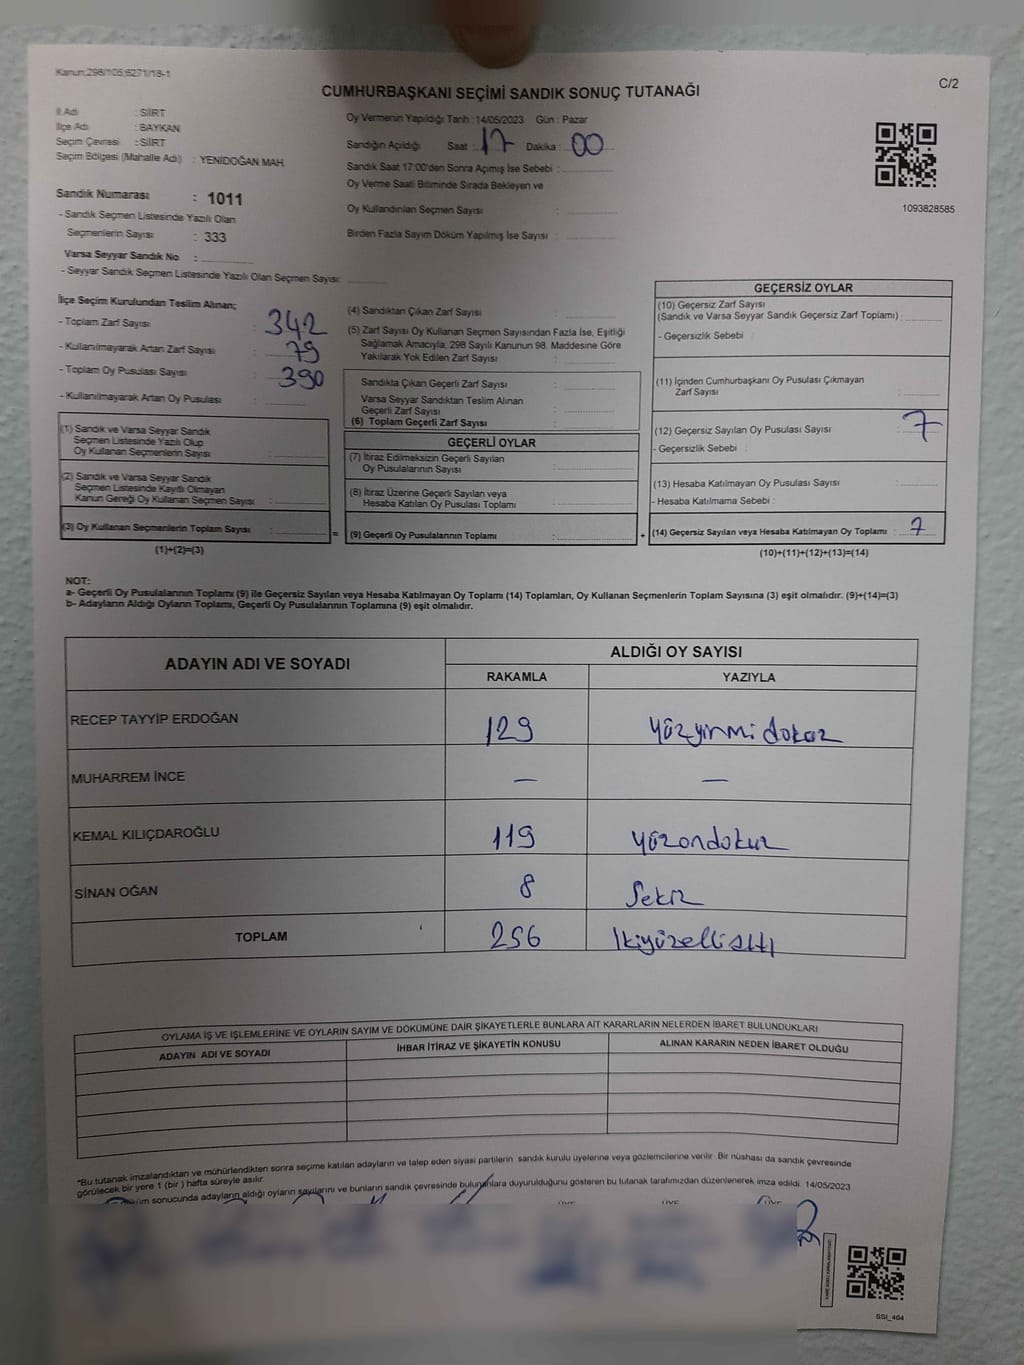 Kanun;298/105;6271/18-1
C/2
CUMHURBAŞKANI SEÇİMİ SANDIK SONUÇ TUTANAĞI
İl Adı : SİİRT
İlçe Adı : BAYKAN
Seçim Çevresi : SİİRT
Seçim Bölgesi (Mahalle Adı) : YENİDOĞAN MAH.
Oy Vermenin Yapıldığı Tarih : 14/05/2023 Gün : Pazar
Sandığın Açıldığı Saat : 17 Dakika : 00
Sandık Saat 17:00'den Sonra Açımış İse Sebebi :
Oy Verme Saati Bitiminde Sırada Bekleyen ve
Oy Kullandırılan Seçmen Sayısı :
Birden Fazla Sayım Döküm Yapılmış İse Sayısı :
1093828585
Sandık Numarası : 1011
- Sandık Seçmen Listesinde Yazılı Olan
Seçmenlerin Sayısı : 333
Varsa Seyyar Sandık No :
- Seyyar Sandık Seçmen Listesinde Yazılı Olan Seçmen Sayısı:
İlçe Seçim Kurulundan Teslim Alınan;
- Toplam Zarf Sayısı : 342
- Kullanılmayarak Artan Zarf Sayısı : 79
- Toplam Oy Pusulası Sayısı : 390
- Kullanılmayarak Artan Oy Pusulası :
(1) Sandık ve Varsa Seyyar Sandık
Seçmen Listesinde Yazılı Olup
Oy Kullanan Seçmenlerin Sayısı :
(2) Sandık ve Varsa Seyyar Sandık
Seçmen Listesinde Kayıtlı Olmayan
Kanun Gereği Oy Kullanan Seçmen Sayısı :
(3) Oy Kullanan Seçmenlerin Toplam Sayısı :
(1)+(2)=(3)
(4) Sandıktan Çıkan Zarf Sayısı :
(5) Zarf Sayısı Oy Kullanan Seçmen Sayısından Fazla İse, Eşitliği
Sağlamak Amacıyla, 298 Sayılı Kanunun 98. Maddesine Göre
Yakılarak Yok Edilen Zarf Sayısı :
Sandıkta Çıkan Geçerli Zarf Sayısı :
Varsa Seyyar Sandıktan Teslim Alınan
Geçerli Zarf Sayısı :
(6) Toplam Geçerli Zarf Sayısı :
GEÇERLİ OYLAR
(7) İtiraz Edilmeksizin Geçerli Sayılan
Oy Pusulalarının Sayısı :
(8) İtiraz Üzerine Geçerli Sayılan veya
Hesaba Katılan Oy Pusulası Toplamı :
= (9) Geçerli Oy Pusulalarının Toplamı :
GEÇERSİZ OYLAR
(10) Geçersiz Zarf Sayısı
(Sandık ve Varsa Seyyar Sandık Geçersiz Zarf Toplamı) :
- Geçersizlik Sebebi :
(11) İçinden Cumhurbaşkanı Oy Pusulası Çıkmayan
Zarf Sayısı :
(12) Geçersiz Sayılan Oy Pusulası Sayısı : 7
- Geçersizlik Sebebi :
(13) Hesaba Katılmayan Oy Pusulası Sayısı :
- Hesaba Katılmama Sebebi :
+ (14) Geçersiz Sayılan veya Hesaba Katılmayan Oy Toplamı : 7
(10)+(11)+(12)+(13)=(14)
NOT:
a- Geçerli Oy Pusulalarının Toplamı (9) ile Geçersiz Sayılan veya Hesaba Katılmayan Oy Toplamı (14) Toplamları, Oy Kullanan Seçmenlerin Toplam Sayısına (3) eşit olmalıdır. (9)+(14)=(3)
b- Adayların Aldığı Oyların Toplamı, Geçerli Oy Pusulalarının Toplamına (9) eşit olmalıdır.
ADAYIN ADI VE SOYADI ALDIĞI OY SAYISI
RAKAMLA YAZIYLA
RECEP TAYYİP ERDOĞAN 129 yüzyirmi dokuz
MUHARREM İNCE — —
KEMAL KILIÇDAROĞLU 119 yüzondokuz
SİNAN OĞAN 8 Sekiz
TOPLAM 256 İkiyüzellialtı
OYLAMA İŞ VE İŞLEMLERİNE VE OYLARIN SAYIM VE DÖKÜMÜNE DAİR ŞİKAYETLERLE BUNLARA AİT KARARLARIN NELERDEN İBARET BULUNDUKLARI
ADAYIN ADI VE SOYADI İHBAR İTİRAZ VE ŞİKAYETİN KONUSU ALINAN KARARIN NEDEN İBARET OLDUĞU
"Bu tutanak imzalandıktan ve mühürlendikten sonra seçime katılan adayların ve talep eden siyasi partilerin sandık kurulu üyelerine veya gözlemcilerine verilir. Bir nüshası da sandık çevresinde
görülecek bir yere 1 (bir ) hafta süreyle asılır.
sonucunda adayların aldığı oyların sayılarını ve bunların sandık çevresinde bulunanlara duyurulduğunu gösteren bu tutanak tarafımızdan düzenlenerek imza edildi. 14/05/2023
SSI_404